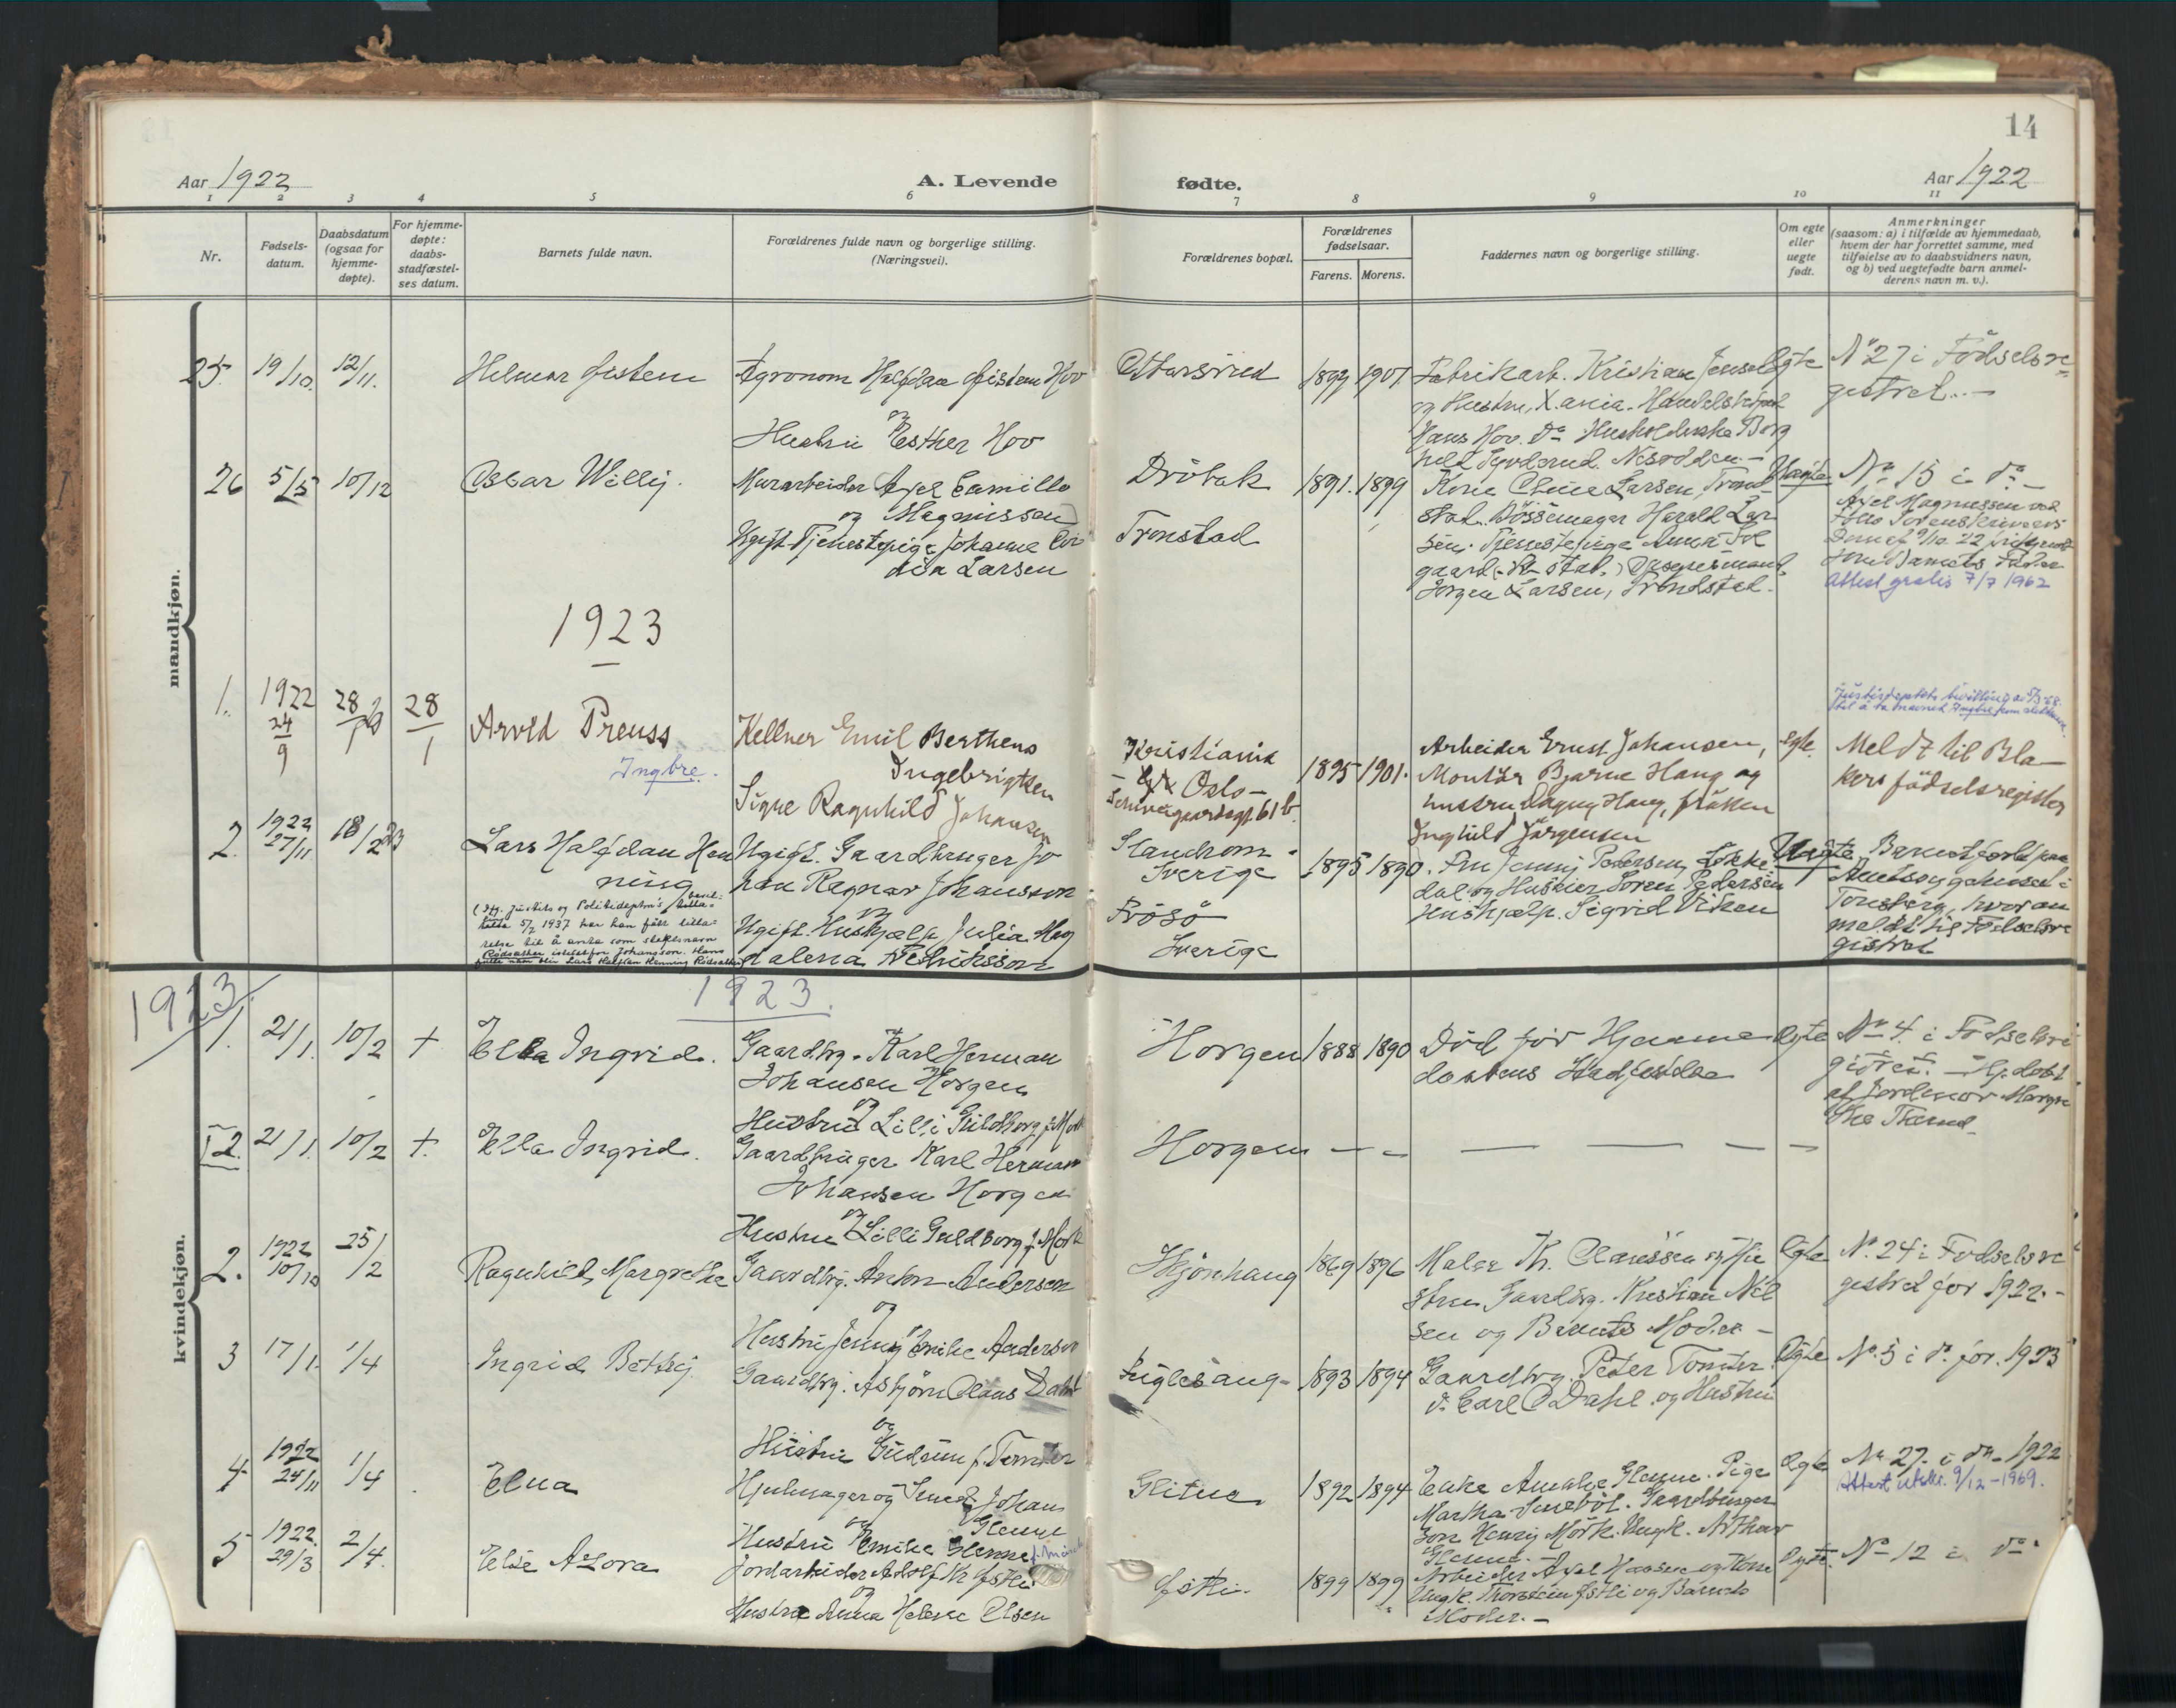 14
Aar 1922
A. Levende
fødte.
Aar 1922
1 2 3 4 5 6 7 8 9 10 11
Nr.
Fødsels-
datum.
Daabsdatum
(ogsaa for
hjemme-
døpte).
For hjemme-
døpte:
daabs-
stadfæstel-
ses datum.
Barnets fulde navn.
Forældrenes fulde navn og borgerlige stilling.
(Næringsvei).
Forældrenes bopæl.
Forældrenes
fødselsaar.
Farens. Morens.
Faddernes navn og borgerlige stilling.
Om egte
eller
uegte
født.
Anmerkninger
(saasom: a) i tilfælde av hjemmedaab,
hvem der har forrettet samme, med
tilføielse av to daabsvidners navn,
og b) ved uegtefødte barn anmel-
derens navn m. v.).
mandkjøn.
25. 19/10. 12/11.
Helmer Østein
Agronom Halfdan Østein Hov
og
Hustru Esther Hov
1899 1901
Fabrikarb. Kristian Jensen
og Hustru, X.ania. Handels
Hans Hov. do Husholderske Borg
Nesodden.-
Egte
No 27 i Fødselsre
gistret.-
26 5/5 10/12
Oscar Willy.
Murarbeider Axel Camillo
og Magnussen
Ugift Tjenestepige Johanne
Larsen
Drøbak
Tronstad
1891. 1899
Kone Larsen, Tron
stad. Bøssemager Harald Lar
sen. Tjenestepige Anna
gaard
Jørgen Larsen, Trondstad.
Uegte
No 15 i do
Axel Magnussen ved
Follo Sorenskriveris
Dom af 9/10 22
som Barnets Fader
Attest gratis 7/7 1962
1923
1. 1922 24/9 28/1 23 28/1
Arvid Preuss
Ingbre.
Kellner Emil Berthens
Ingebrigtsen
Signe Ragnhild Johansen
Kristiania
Oslo-
Schweigaardsgt. 61 b.
1895 1901.
Arbeider Ernst Johansen,
Montør Bjarne Haug og
hustru Dagny Haug, frøken
Inghild Jørgensen
egte.
Meldt til Bla-
kers fødselsregister
2. 1922 27/11 18/2 23
Lars Halfdan Hen
ning
5/7 1937 har han fått tilla-
telse til å anta som slektsnavn
Rødsæther istedetfor Johansson. Hans
fulle navn blir Lars Halfdan Henning Rødsæther)
Ugift. Gaardbruger Jo
han Ragnar Johansson
og
Ugift. Hushjælp Julia Mag
dalena Fredriksson
Sverige
Frösö
Sverige
1895 1890.
Fru Jenny Pedersen, Løkke
dal. og Huseier Søren Pedersen
Hushjælp. Sigrid Viken
Uegte
Barnet født paa
Amtssygehuset i
Tønsberg, hvor an
meldt til Fødselsre
gistret
kvindekjøn.
1923 1923.
1. 21/1. 10/2 +
Ella Ingrid.
Gaardbrg. Karl Herman
Johansen Horgen
og
Hustru Lilli Guldborg f. Mørk
Horgen
1888 1890
Død før Hjemme
daabens Stadfæstelse
Egte
No 4. i Fødselsre
gistret. - Hj.døbt
af Jordemor
I 2. 21/1. 10/2 +.
Ella Ingrid.
Gaardbruger Karl Herman
Johansen Horgen
og
Hustru Lilli Guldborg f. Mørk
Horgen — — — — —
2. 1922 10/10 25/2
Ragnhild Margrethe
Gaardbrg. Anton Andersen
og
Hustru Jenny Emilie Andersen
1869 1896
Maler Th. Claussen og Hu
stru Gaardbrg. Kristian Nil
sen og Barnets Moder -
Egte
No. 24 i Fødselsre
gistret for 1922.-
3 17/1. 1/4
Ingrid Betsy
Gaardbrg. Asbjørn Claus Dahl
og
Hustru Gudrun f. Tomter
Fuglesang-
1893 1894
Gaardbrg. Peter Tomter.
do Carl Dahl og Hustru
Egte
No. 5 i do for. 1923
4 1922 24/11 1/4
Elna
Hjulmager og Smed Johan
Glenne
og
Hustru Emilie Glenne f. Mørk
Glitne
1892 1894
Enke Amalie Glenne. Pige
Martha Gaardbruger
Henry Mørk. Ungk. Arthur
Glenne.
Egte
No 27. i do 1922
Attest utstedt. 9/12-1969.
5 1922. 29/3 2/4.
Else Azora
Jordarbeider Adolf Østli
og
Hustru Anna Helene Olsen
Østli.
1899 1899
Arbeider Axel Hansen og Kone
Ungk. Thorstein Østli og Barnets
Moder.-
Egte.
No 12 i do